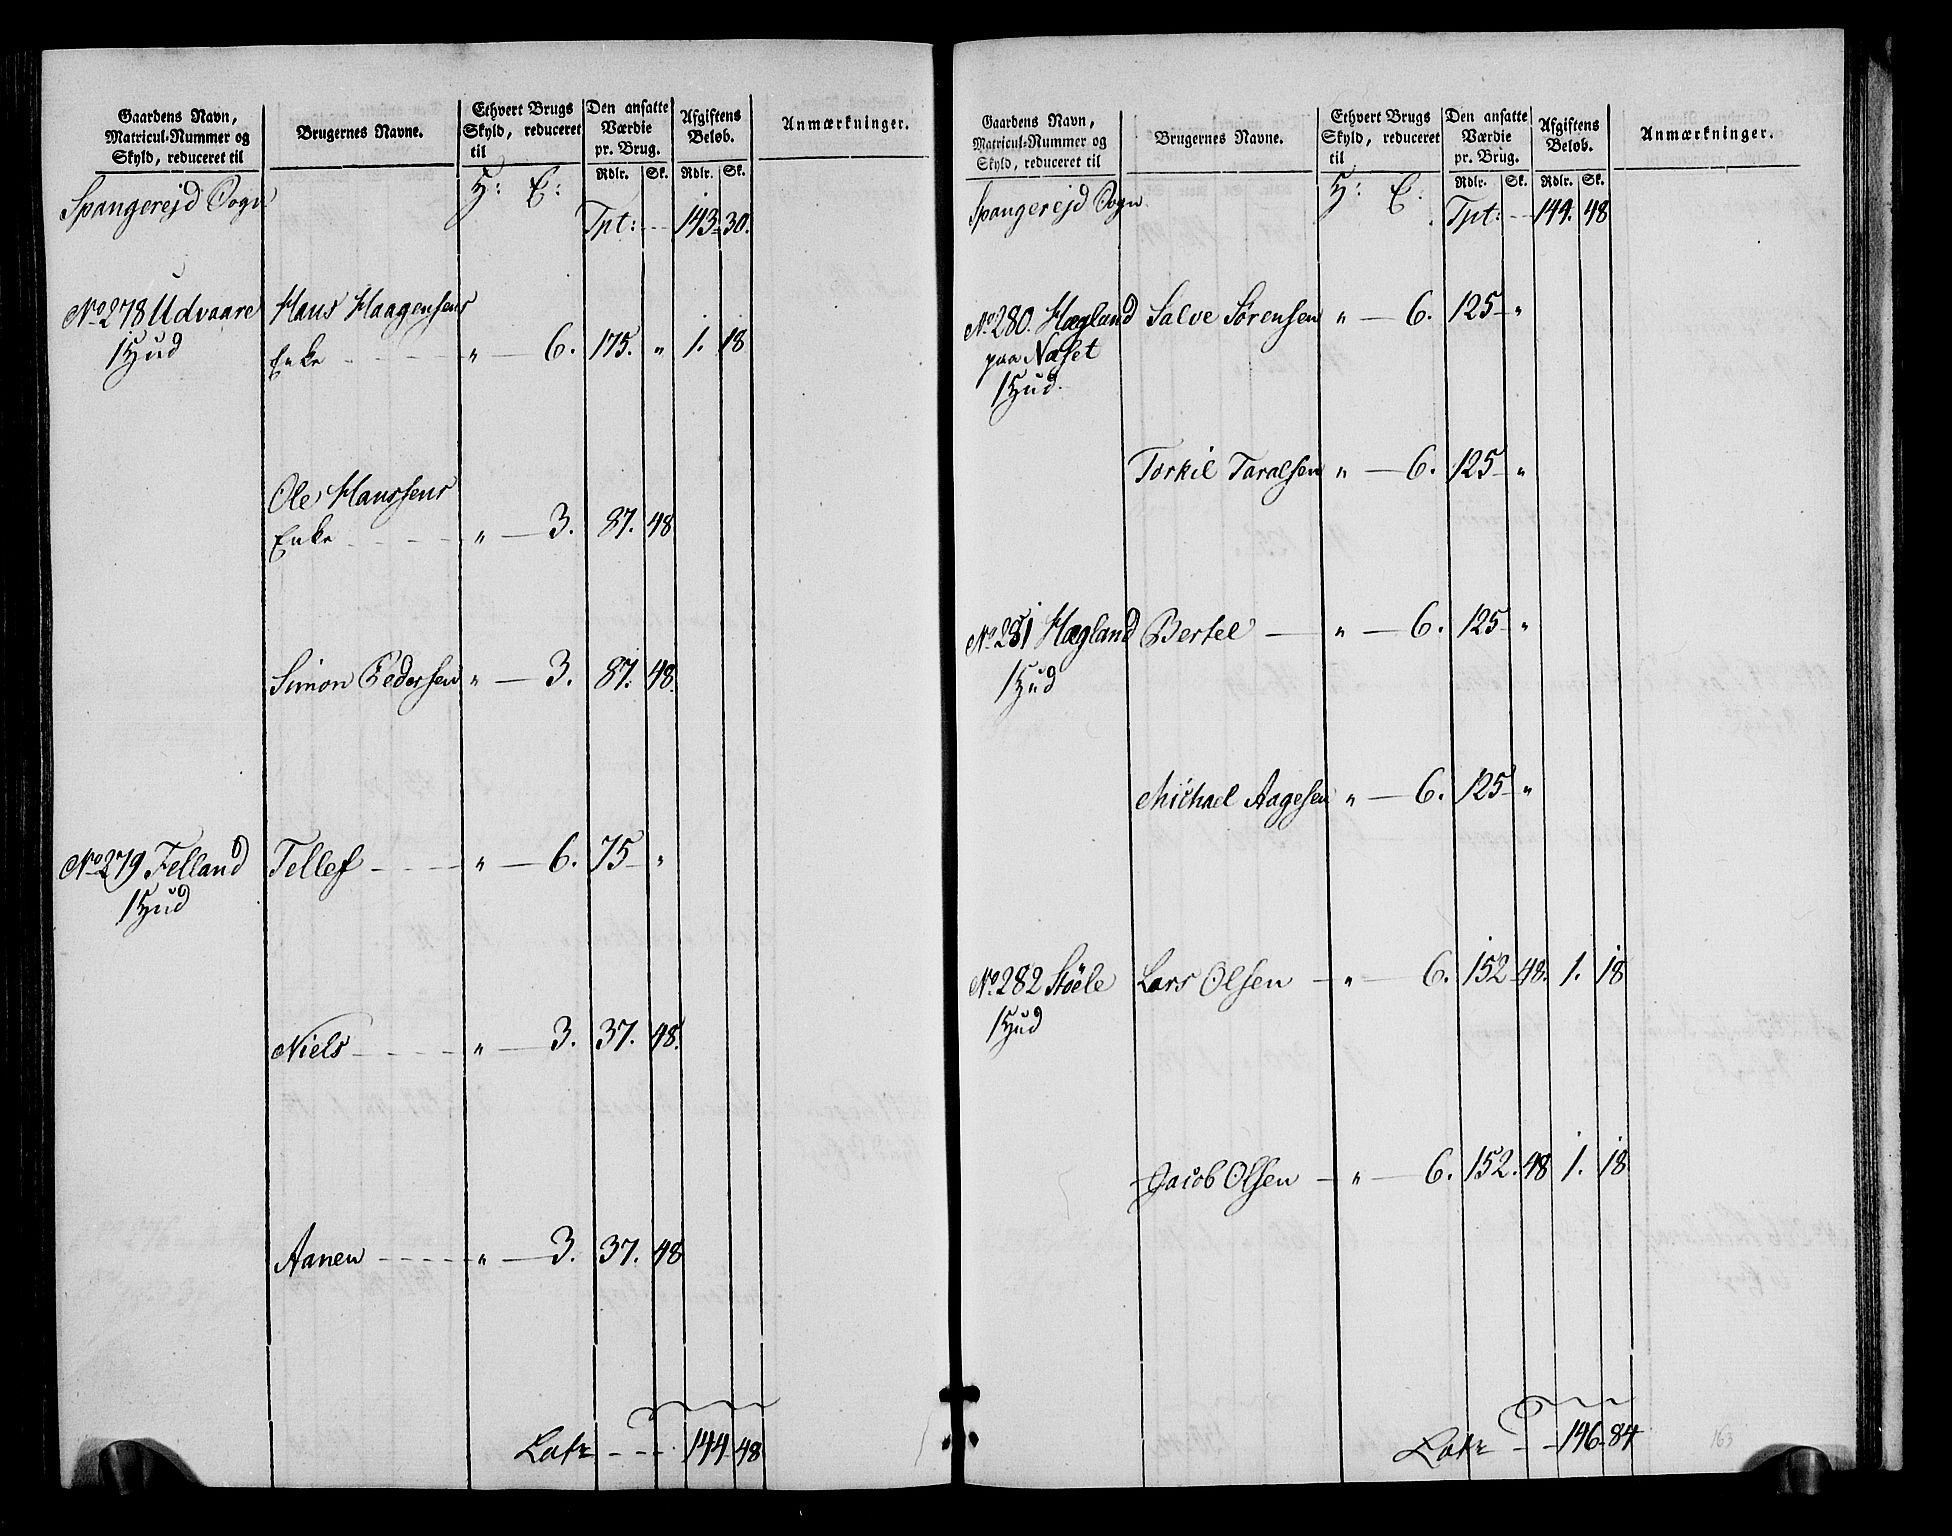 Gaardens Navn,
Matricul-Nummer og
Skyld, reduceret til
Brugernes Navne.
Ethvert Brugs
Skyld, reduceret
til
Den ansatte
Værdie
pr. Brug.
Rdlr. Sk.
Afgiftens
Beløb.
Rdlr. Sk.
Anmærkninger.
Spangerejd Sogn
H: E:
Tpt: - - 143 - 30.
No 278 Udvaare Hans Haagensens
1 Hud Enke - - - " — 6. 175. " 1. 18
Ole Hanssens
Enke - - - " — 3. 87. 48
Simon Pedersen " — 3. 87. 48.
No 279 Felland Tellef - - - " — 6. 75 - "
1 Hud
Niels - - - " — 3. 37. 48.
Aanen - - - " — 3. 37. 48
Latr - - - 144 - 48
Gaardens Navn,
Matricul-Nummer og
Skyld, reduceret til
Brugernes Navne.
Ethvert Brugs
Skyld, reduceret
til
Den ansatte
Værdie
pr. Brug.
Rdlr. Sk.
Afgiftens
Beløb.
Rdlr. Sk.
Anmærkninger.
Spangerejd Sogn
H: E:
Tpt: - - 144. 48
No 280. Hægland Salve Sørensen " — 6. 125 - "
paa Næset
1 Hud.
Torkil Taralsen " — 6. 125 - "
No 281 Hægland Bertel — " — 6. 125 - "
1 Hud
Michael Aagesen " — 6. 125 - "
No 282 Støele Lars Olsen — " — 6. 152 48. 1. 18
1 Hud
Jacob Olsen — " — 6. 152. 48 1. 18
Latr - - 146 - 84
163